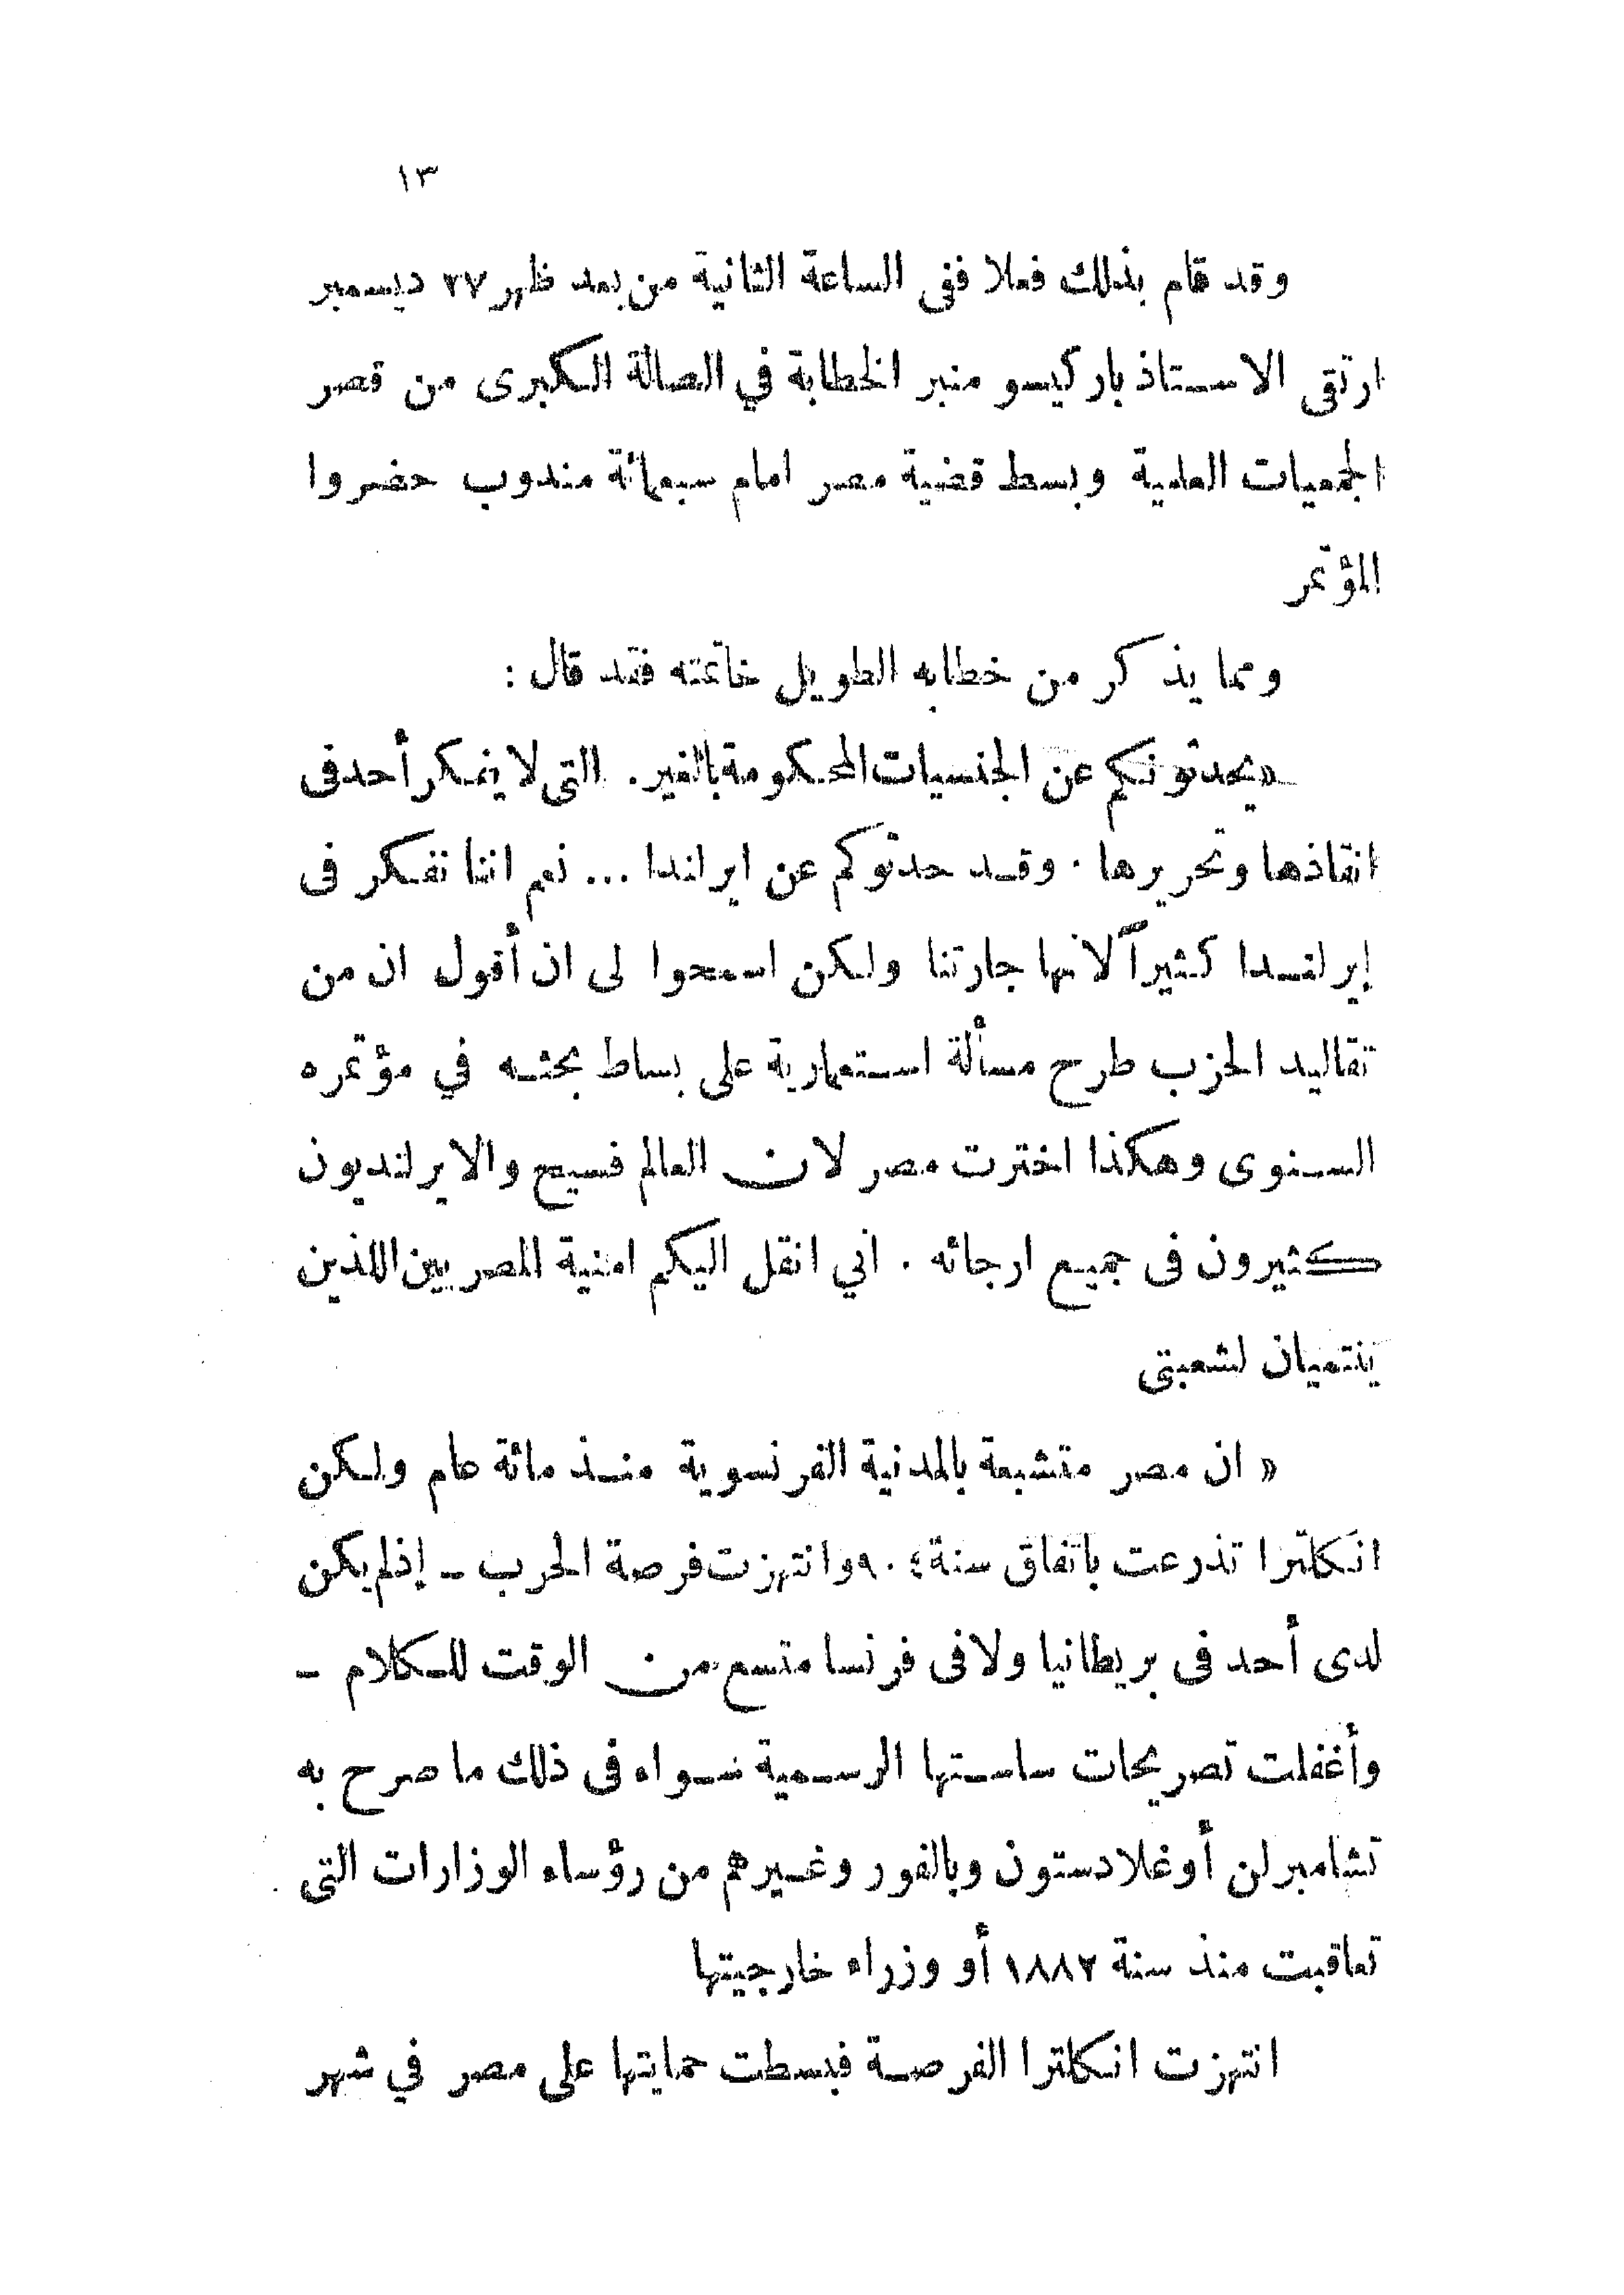 ١٣
وقد قام بذلك فعلا ففى الساعة الثانية من بعد ظهر ٢٧ ديسمبر
ارتقى الاستاذ باركيسو منبر الخطابة في الصالة الكبرى من قصر
الجمعيات العلمية وبسط قضية مصر امام سبعمائة مندوب حضروا
المؤتمر
ومما يذكر من خطابه الطويل خاتمته فقد قال :
«يحدثونكم عن الجنسيات المحكومة بالغير . التى لا يفكر أحد فى
انقاذها وتحريرها . وقد حدثوكم عن ايرلندا ... نعم اننا نفكر فى
إيرلندا كثيراً لانها جارتنا ولكن اسمحوا لى ان أقول ان من
تقاليد الحزب طرح مسألة استعمارية على بساط بحثه في مؤتمره
السنوى وهكذا اخترت مصر لان العالم فسيح والايرلنديون
كثيرون فى جميع ارجائه . اني انقل اليكم امنية المصريين اللذين
ينتميان لشعبتى
« ان مصر متشبعة بالمدنية الفرنسوية منذ مائة عام ولكن
انكلترا تذرعت باتفاق سنة ٩٠٤ وانتهزت فرصة الحرب ــ إذ لم يكن
لدى أحد فى بريطانيا ولا فى فرنسا متسع من الوقت للكلام ــ
وأغفلت تصريحات ساستها الرسمية سواه فى ذلك ما صرح به
تشامبرلن أو غلادستون وبالفور وغيرهم من رؤساء الوزارات التى
تعاقبت منذ سنة ١٨٨٢ أو وزراء خارجيتها
انتهزت انكلترا الفرصة فبسطت حمايتها على مصر في شهر